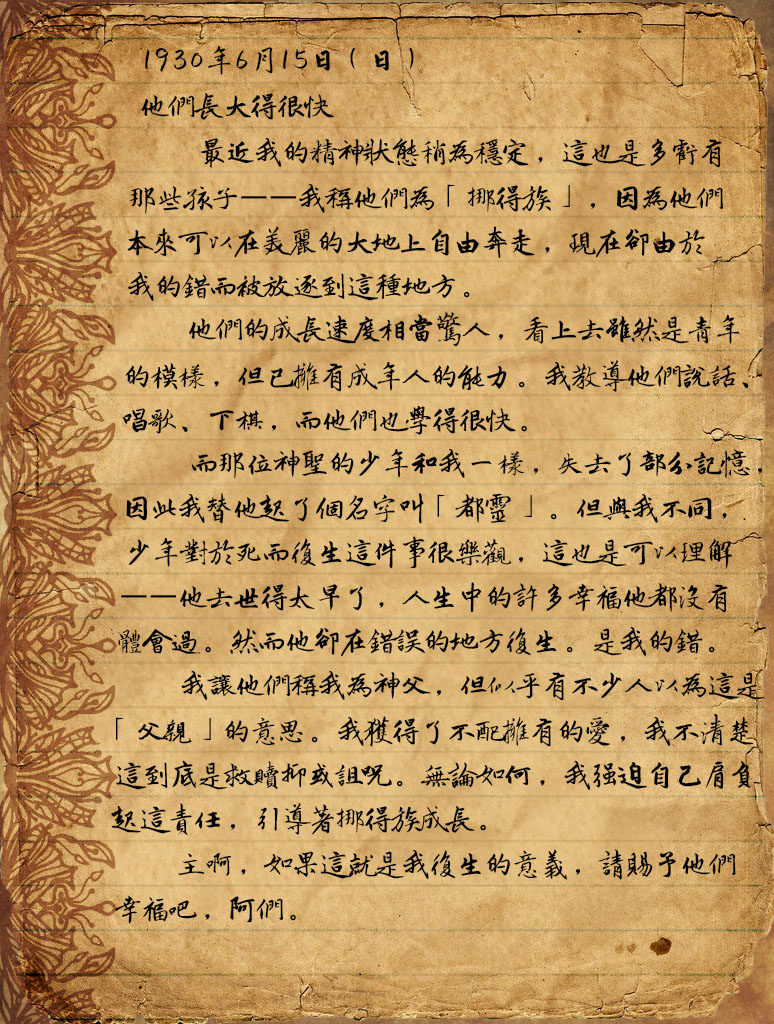 1930年6月15日（日）
他們長大得很快
最近我的精神狀態稍為穩定，這也是多虧有
那些孩子——我稱他們為「挪得族」，因為他們
本來可以在美麗的大地上自由奔走，現在卻由於
我的錯而被放逐到這種地方。
他們的成長速度相當驚人，看上去雖然是青年
的模樣，但已擁有成年人的能力。我教導他們說話、
唱歌、下棋，而他們也學得很快。
而那位神聖的少年和我一樣，失去了部分記憶，
因此我替他起了個名字叫「都靈」。但與我不同，
少年對於死而復生這件事很樂觀，這也是可以理解
——他去世得太早了，人生中的許多幸福他都沒有
體會過。然而他卻在錯誤的地方復生。是我的錯。
我讓他們稱我為神父，但似乎有不少人以為這是
「父親」的意思。我獲得了不配擁有的愛，我不清楚
這到底是救贖抑或詛咒。無論如何，我强迫自己肩負
起這責任，引導著挪得族成長。
主啊，如果這就是我復生的意義，請賜予他們
幸福吧，阿們。